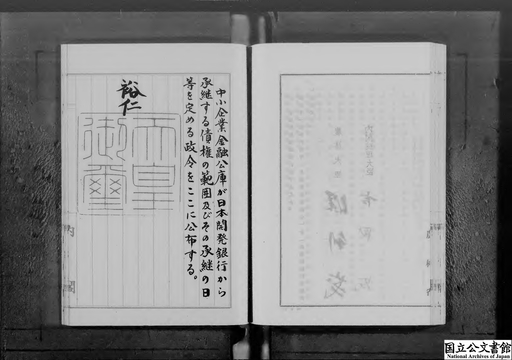 中小企業金融公庫が日本開発銀行から
承継する債権の範囲及びその承継の日
等を定める政令をここに公布する。
裕仁
天皇
御璽
内
国立公文書館
National Archives of Japan